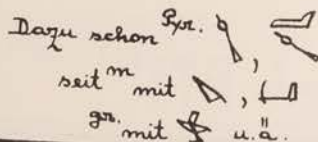 Dazu schon Pyr.
,
seit m mit ,
gr. mit u.ä.